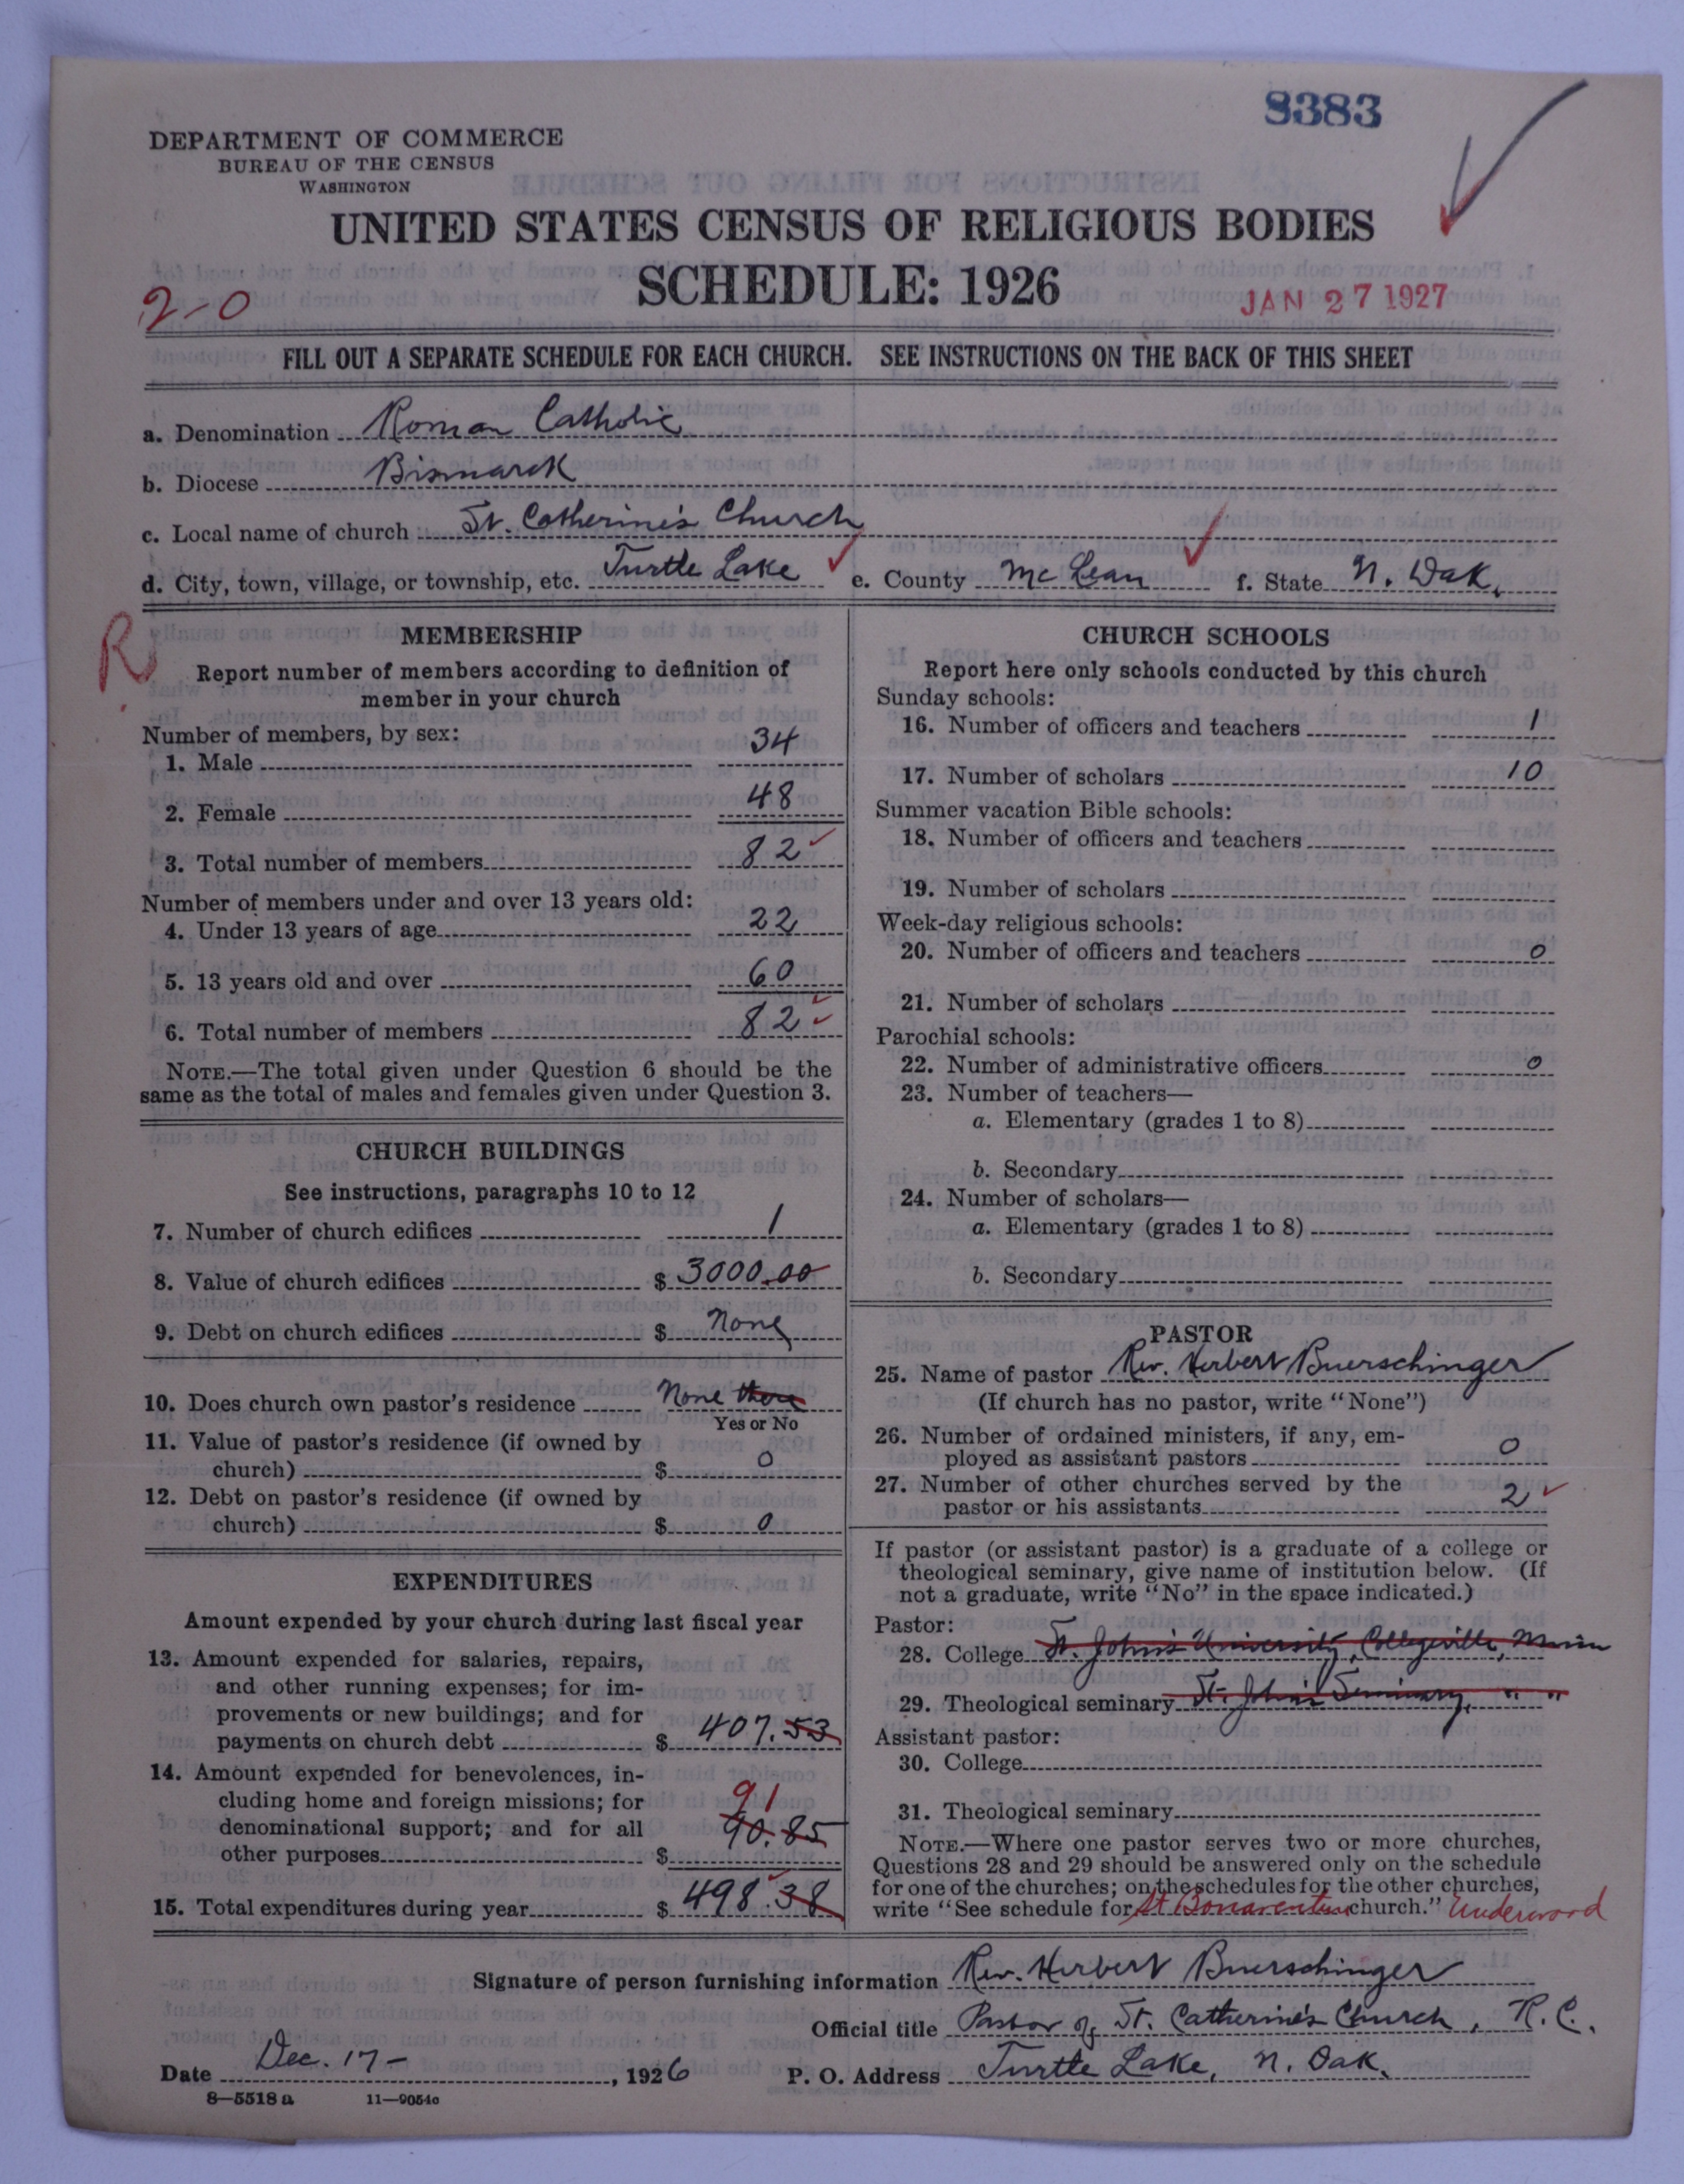 8383
DEPARTMENT OF COMMERCE
BUREAU OF THE CENSUS
WASHINGTON
UNITED STATES CENSUS OF RELIGIOUS BODIES
SCHEDULE: 1926
2-0
JAN 27 1927
FILL OUT A SEPARATE SCHEDULE FOR EACH CHURCH. SEE INSTRUCTIONS ON THE BACK OF THIS SHEET
a. Denomination Roman Catholic
b. Diocese Bismarck
c. Local name of church St. Catherine's Church
d. City, town, village, or township, etc. Turtle Lake e. County McLean f. State N. Dak.
R
MEMBERSHIP
Report number of members according to definition of
member in your church
Number of members, by sex:
1. Male 34
2. Female 48
3. Total number of members 82
Number of members under and over 13 years old:
4. Under 13 years of age 22
5. 13 years old and over 60
6. Total number of members 82
NOTE.—The total given under Question 6 should be the
same as the total of males and females given under Question 3.
CHURCH BUILDINGS
See instructions, paragraphs 10 to 12
7. Number of church edifices 1
8. Value of church edifices $ 3000.00
9. Debt on church edifices $ None
10. Does church own pastor's residence None there
Yes or No
11. Value of pastor's residence (if owned by
church) $ 0
12. Debt on pastor's residence (if owned by
church) $ 0
EXPENDITURES
Amount expended by your church during last fiscal year
13. Amount expended for salaries, repairs,
and other running expenses; for im-
provements or new buildings; and for
payments on church debt $ 407.53
14. Amount expended for benevolences, in-
cluding home and foreign missions; for
91
denominational support; and for all 90.85
other purposes $
15. Total expenditures during year $ 498.38
CHURCH SCHOOLS
Report here only schools conducted by this church
Sunday schools:
16. Number of officers and teachers 1
17. Number of scholars 10
Summer vacation Bible schools:
18. Number of officers and teachers
19. Number of scholars
Week-day religious schools:
20. Number of officers and teachers 0
21. Number of scholars
Parochial schools:
22. Number of administrative officers 0
23. Number of teachers—
a. Elementary (grades 1 to 8)
b. Secondary
24. Number of scholars—
a. Elementary (grades 1 to 8)
b. Secondary
PASTOR
25. Name of pastor Rev. Herbert Buerschinger
(If church has no pastor, write "None")
26. Number of ordained ministers, if any, em-
ployed as assistant pastors 0
27. Number of other churches served by the
pastor or his assistants 2
If pastor (or assistant pastor) is a graduate of a college or
theological seminary, give name of institution below. (If
not a graduate, write "No" in the space indicated.)
Pastor:
28. College St. John's University, Collegeville, Minn
29. Theological seminary St. John's Seminary, " "
Assistant pastor:
30. College
31. Theological seminary
NOTE.—Where one pastor serves two or more churches,
Questions 28 and 29 should be answered only on the schedule
for one of the churches; on the schedules for the other churches,
write "See schedule for St Bonaventure church." Underwood
Signature of person furnishing information Rev. Herbert Buerschinger
Official title Pastor of St. Catherine's Church, R.C.
Date Dec. 17-, 1926 P. O. Address Turtle Lake, N. Dak.
8—5518 a 11—9054c